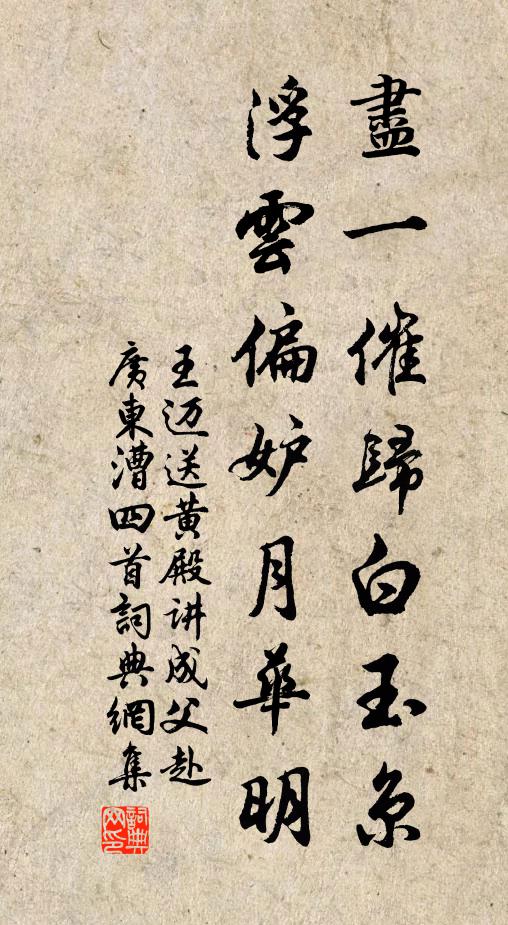 盡一催歸白玉京
浮雲偏妒月華明
王迈送黄殿讲成父赴
廣東漕四首詞典網集
詞典網印